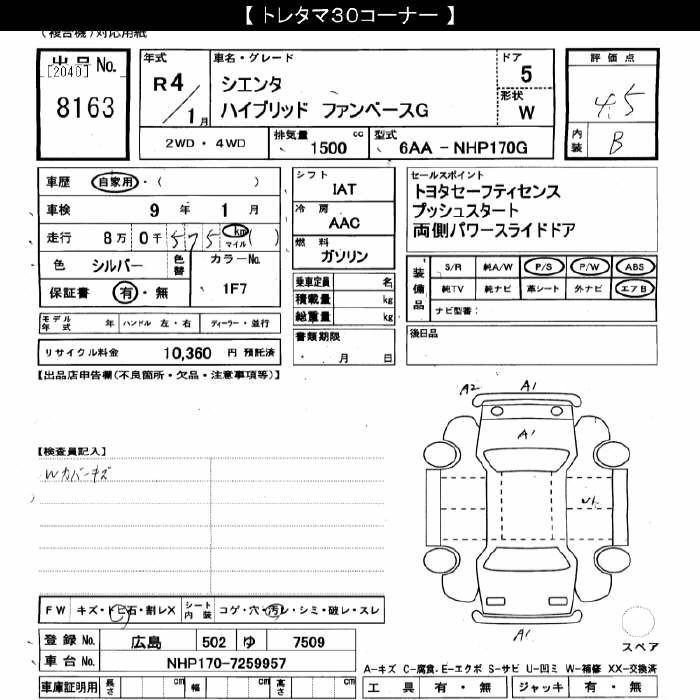 【 トレタマ30コーナー 】
(複合機)対応用紙
出品 No.
[2040]
8163
年式
R4/1月
車名・グレード
シエンタ
ハイブリッド ファンベースG
ドア
5
形状
W
評価点
4.5
内装
B
2WD・4WD
排気量
1500 cc
型式
6AA - NHP170G
車歴 自家用・( )
車検 9 年 1 月
走行 8万 0千 575 km マイル ( )
色 シルバー 色替
カラーNo.
1F7
保証書 有・無
シフト
IAT
冷房
AAC
燃料
ガソリン
乗車定員 名
積載量 kg
総重量 kg
セールスポイント
トヨタセーフティセンス
プッシュスタート
両側パワースライドドア
装備品
S/R 純A/W P/S P/W ABS
純TV 純ナビ 革シート 外ナビ エアB
ナビ型番:
モデル年式 年 ハンドル 左・右 ディーラー・並行
リサイクル料金 10,360 円 預託済
書類期限
・ 月 日
後日品
【出品店申告欄(不良箇所・欠品・注意事項等)】
A2 A1
A1
【検査員記入】
Wカバーキズ
W1
A1
FW キズ・トビ石・割レX シート内装 コゲ・穴・汚レ・シミ・破レ・スレ
登録 No. 広島 502 ゆ 7509
車台 No. NHP170-7259957
スペア
A-キズ C-腐食 E-エクボ S-サビ U-凹ミ W-補修 XX-交換済
車庫証明用 長さ cm 幅 cm 高さ cm
工具 有・無 ジャッキ 有・無